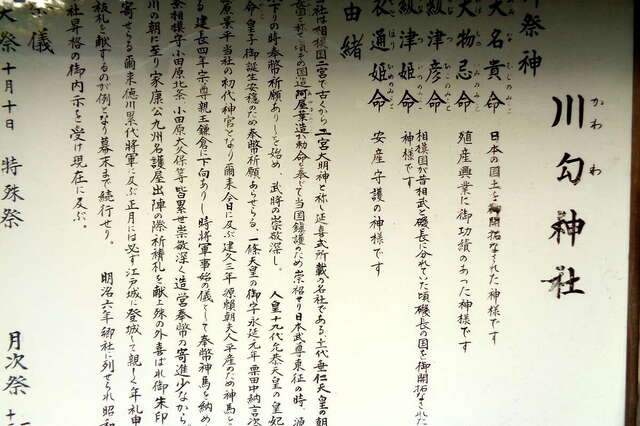 川勾神社
かわわ
御祭神
大名貴命 日本の国土を御開拓なされた神様です
大物忌命 殖産興業に御功績のあった神様です
級津彦命
級津姫命 相模国が昔相武と磯長に分れていた頃磯長の国を御開拓なされた
神様です
衣通姫命 安産守護の神様です
由緒
社は相模国二宮で古くから二宮大明神と称へ延喜式所載の名社である。十一代垂仁天皇の朝
頃の国造阿屋葉造が勅命を奉じて当国鎮護のため崇祀せり日本武尊東征の時、源
下りの時奉幣祈願ありしを始め、武将の崇敬深し。人皇十九代允恭天皇の皇妃
命皇子御誕生安穏のため奉幣祈願あらせらる。一條天皇の御宇永延元年粟田中納言次
原業平当社の初代神官となり爾来今日に及ぶ建久三年源頼朝夫人平産のため神馬と
る建長四年宗尊親王鎌倉に下向ありし時将軍事始の儀として奉幣神馬を納め
相模守小田原北条、小田原大久保等皆累世崇敬深く造営奉幣の寄進少なから
川の朝に至り家康公九州名護屋出陣の際祈祷札を献上殊の外喜ばれ御朱印
寄せらる爾来徳川累代将軍に及ぶ正月には必ず江戸城に登城して親しく年礼申
板札を献ずるが例となり幕末まで続行せり。明治六年郷社に列せられ昭和
社昇格の御内示を受け現在に及ぶ。
儀
大祭 十月十日 特殊祭 月次祭